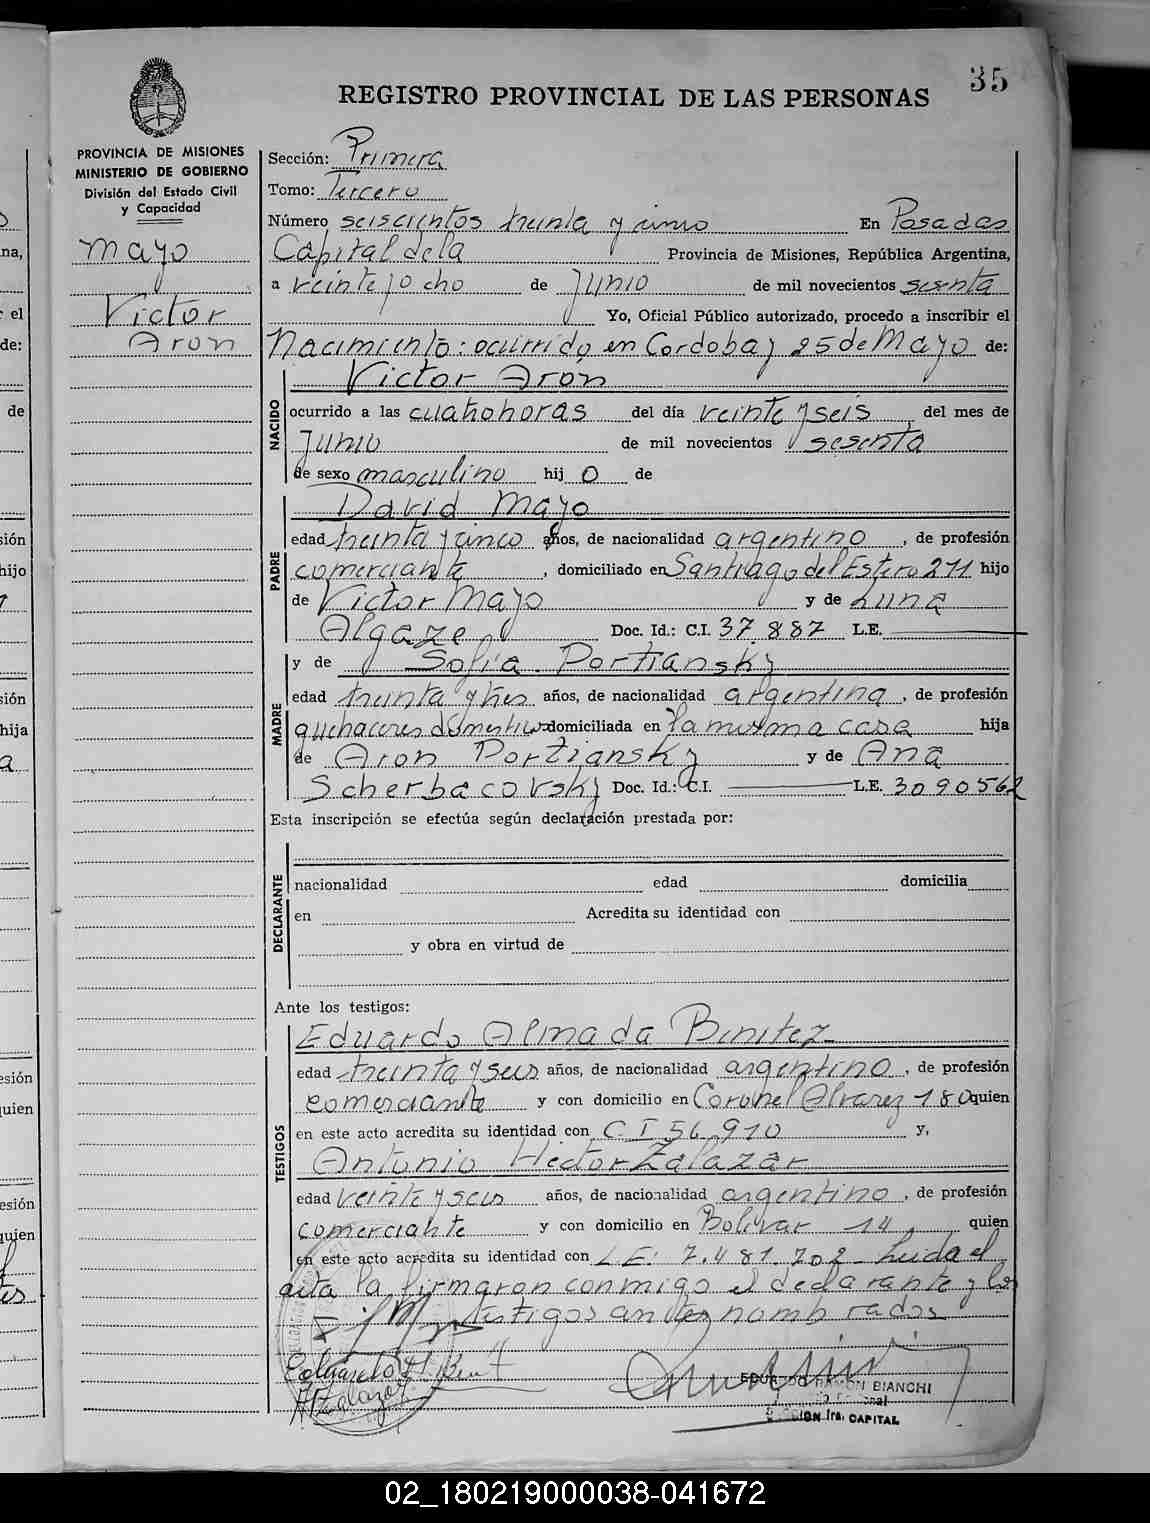 35
REGISTRO PROVINCIAL DE LAS PERSONAS
PROVINCIA DE MISIONES
MINISTERIO DE GOBIERNO
División del Estado Civil
y Capacidad
Mayo
Victor
Aron
Sección: Primera
Tomo: Tercero
Número seiscientos treinta y cinco En Posadas
Capital de la Provincia de Misiones, República Argentina,
a veinte y ocho de Junio de mil novecientos sesenta
Yo, Oficial Público autorizado, procedo a inscribir el
Nacimiento: ocurrido en Cordoba y 25 de Mayo de:
NACIDO
Victor Aron
ocurrido a las cuatro horas del día veinte y seis del mes de
Junio de mil novecientos sesenta
de sexo masculino hij o de
PADRE
David Mayo
edad treinta y cinco años, de nacionalidad argentino, de profesión
comerciante, domiciliado en Santiago del Estero 211 hijo
de Victor Mayo y de Luna
Algaze Doc. Id.: C.I. 37.887 L.E.
MADRE
y de Sofia Portiansky
edad treinta y tres años, de nacionalidad argentina, de profesión
quehaceres domesticos domiciliada en la misma casa hija
de Aron Portiansky y de Ana
Scherbacovsky Doc. Id.: C.I. L.E. 3090562
Esta inscripción se efectúa según declaración prestada por:
DECLARANTE
nacionalidad edad domicilia
en Acredita su identidad con
y obra en virtud de
Ante los testigos:
TESTIGOS
Eduardo Almada Benitez
edad treinta y seis años, de nacionalidad argentino, de profesión
comerciante y con domicilio en Coronel Alvarez 180 quien
en este acto acredita su identidad con C.I 56.910 y,
Antonio Hector Zalazar
edad veinte y seis años, de nacionalidad argentino, de profesión
comerciante y con domicilio en Bolivar 14, quien
en este acto acredita su identidad con L.E: 7.481.702 Leida el
acta la firmaron conmigo el declarante y los
testigos antes nombrados
EDUARDO RAMON BIANCHI
CAPITAL
02_180219000038-041672